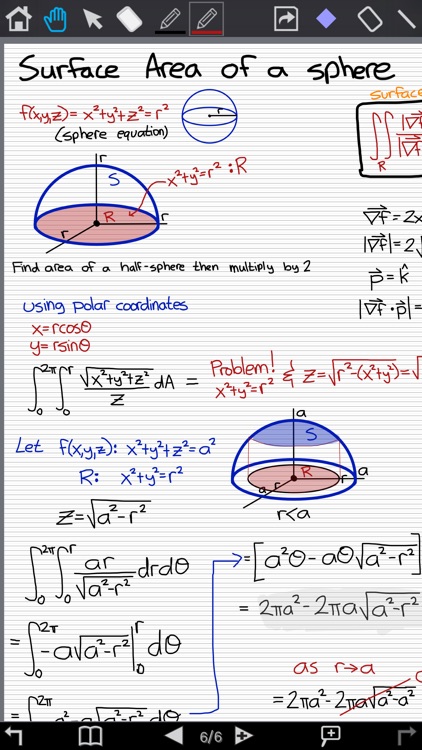 Surface Area of a sphere
f(x,y,z) = x²+y²+z² = r²
(sphere equation)
r
surface
∬ |∇f| / |∇f
R
r
S
x²+y²=r² : R
R
r
r
Find area of a half-sphere then multiply by 2
∇f = 2x
|∇f| = 2√
p = k̂
|∇f · p| =
Using polar coordinates
x=rcosθ
y=rsinθ
∫₀^2π ∫₀^r √(x²+y²+z²) / z dA =
Problem!
x²+y²=r² & z=√(r²-(x²+y²)) = √
Let f(x,y,z): x²+y²+z²=a²
R: x²+y²=r²
z=√(a²-r²)
a
S
R
a
a
r
r
r<a
∫₀^2π ∫₀^r ar / √(a²-r²) drdθ
= ∫₀^2π -a√(a²-r²) |₀^r dθ
= ∫₀^2π a²-a√(a²-r²) dθ
= [a²θ-aθ√(a²-r²)]
= 2πa²-2πa√(a²-r²)
as r→a
= 2πa²-2πa√(a²-a²)
6/6